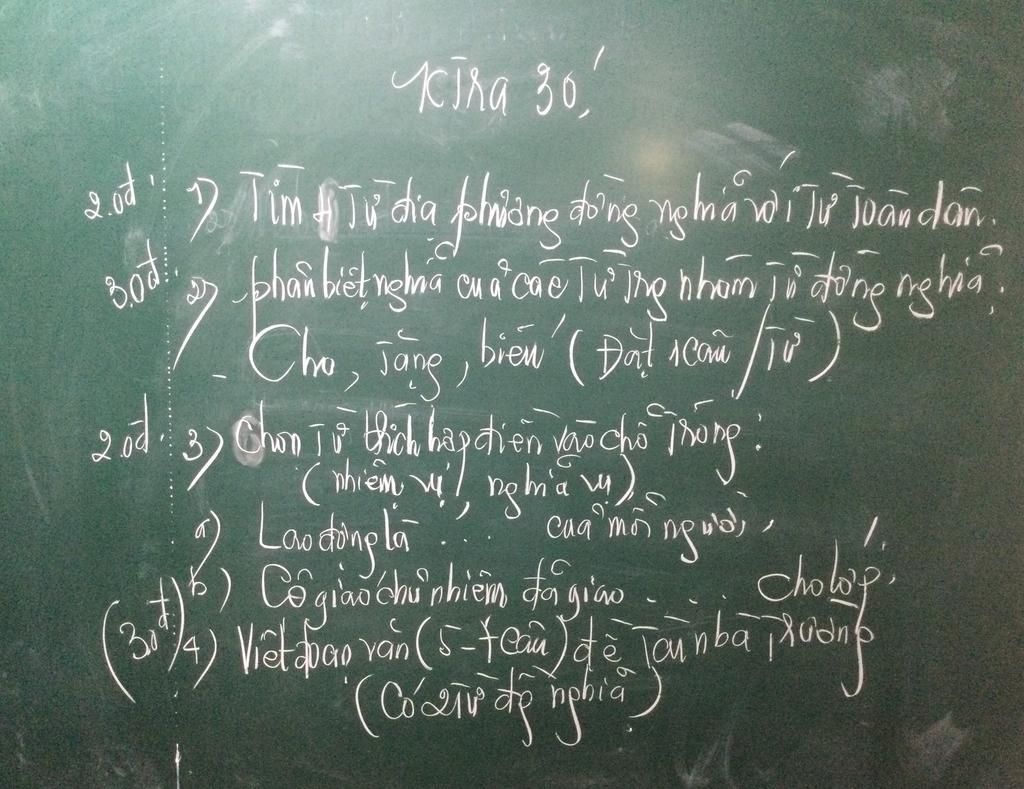 Ktra 30'
2.0đ 1) Tìm 4 từ địa phương đồng nghĩa với từ toàn dân.
3.0đ 2) Phân biệt nghĩa của các từ trg nhóm từ đồng nghĩa.
- Cho, tặng, biếu (Đặt 1 câu / từ)
2.0đ 3) Chọn từ thích hợp điền vào chỗ trống:
(nhiệm vụ, nghĩa vụ)
a) Lao động là ... của mỗi người.
b) Cô giáo chủ nhiệm đã giao .... cho lớp.
(3.0đ) 4) Viết đoạn văn (5-7 câu) đề tài nhà trường
(Có 2 từ đg nghĩa)